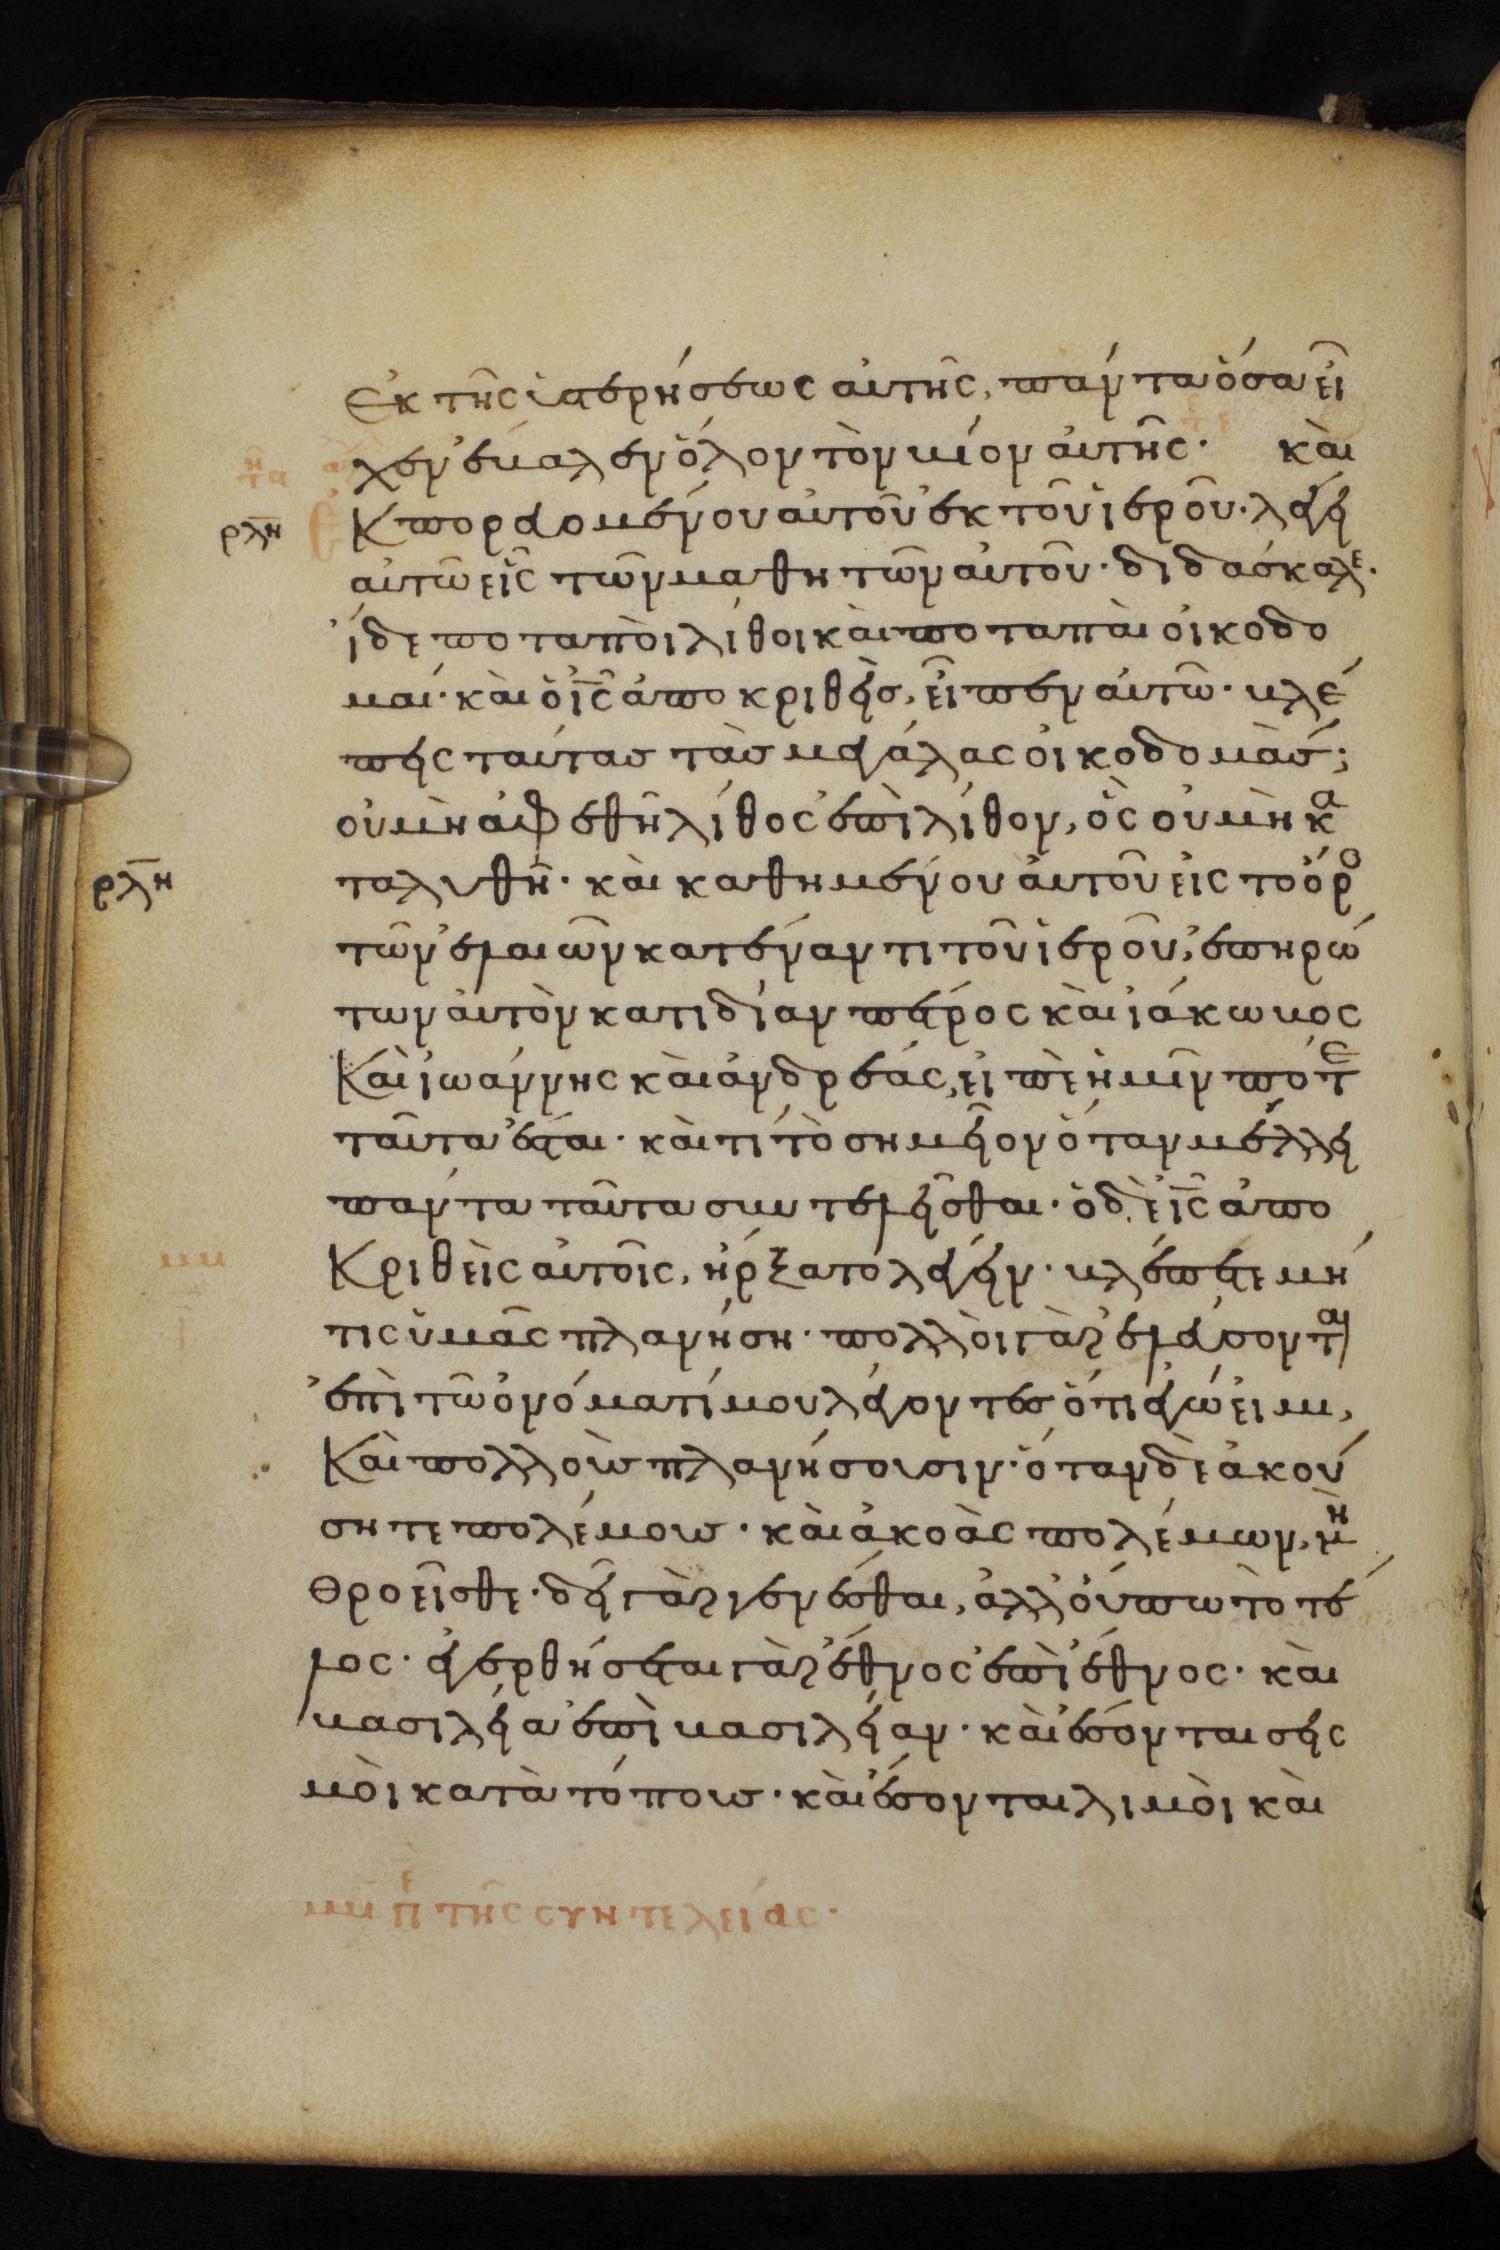 ἐκ τῆς ὑστερήσεως αὐτῆς, πάντα ὅσα εἶ
χεν ἔβαλεν ὅλον τὸν βίον αὐτῆς· καὶ
ρλη ἐκπορευομένου αὐτοῦ ἐκ τοῦ ἱεροῦ· λέγει
αὐτῶ εἷς τῶν μαθητῶν αὐτοῦ· διδάσκαλε·
ἴδε ποταποὶ λίθοι καὶ ποταπαὶ οἰκοδο
μαί· καὶ ὁ ι̅ς̅ ἀποκριθεὶς, εἶπεν αὐτῶ· βλέ
πεις ταύτας τὰς μεγάλας οἰκοδομάς;
οὐ μὴ ἀφεθῆ λίθος ἐπὶ λίθον, ὃς οὐ μὴ κα
ρλη ταλυθῆ· καὶ καθημένου αὐτοῦ εἰς τὸ ὄρο
τῶν ἐλαιῶν κατέναντι τοῦ ἱεροῦ, ἐπηρώ
των αὐτὸν κατιδίαν πέτρος καὶ ἰάκωβος
καὶ ἰωάννης καὶ ἀνδρέας, εἰπὲ ἡμῖν πότε
ταῦτα ἔσται· καὶ τί τὸ σημεῖον ὅταν μέλλει
πάντα ταῦτα συντελεῖσθαι· ὁ δὲ ι̅ς̅ ἀπο
κριθεὶς αὐτοῖς, ἤρξατο λέγειν· βλέπετε μή
τις ὑμᾶς πλανήση· πολλοὶ γὰρ ἐλεύσονται
ἐπὶ τῶ ὀνόματί μου λέγοντες ὅτι ἐγώ εἰμι,
καὶ πολλοὺς πλανήσουσιν· ὅταν δὲ ἀκού
σητε πολέμους· καὶ ἀκοὰς πολέμων, μὴ
θροεῖσθε· δεῖ γὰρ γενέσθαι, ἀλλ' οὔπω τὸ τέ
λος· ἐγερθήσεται γὰρ ἔθνος ἐπὶ ἔθνος· καὶ
βασιλεία ἐπὶ βασιλείαν· καὶ ἔσονται σεις
μοὶ κατὰ τόπους· καὶ ἔσονται λιμοὶ καὶ
μβ πε τῆς συντελείας·